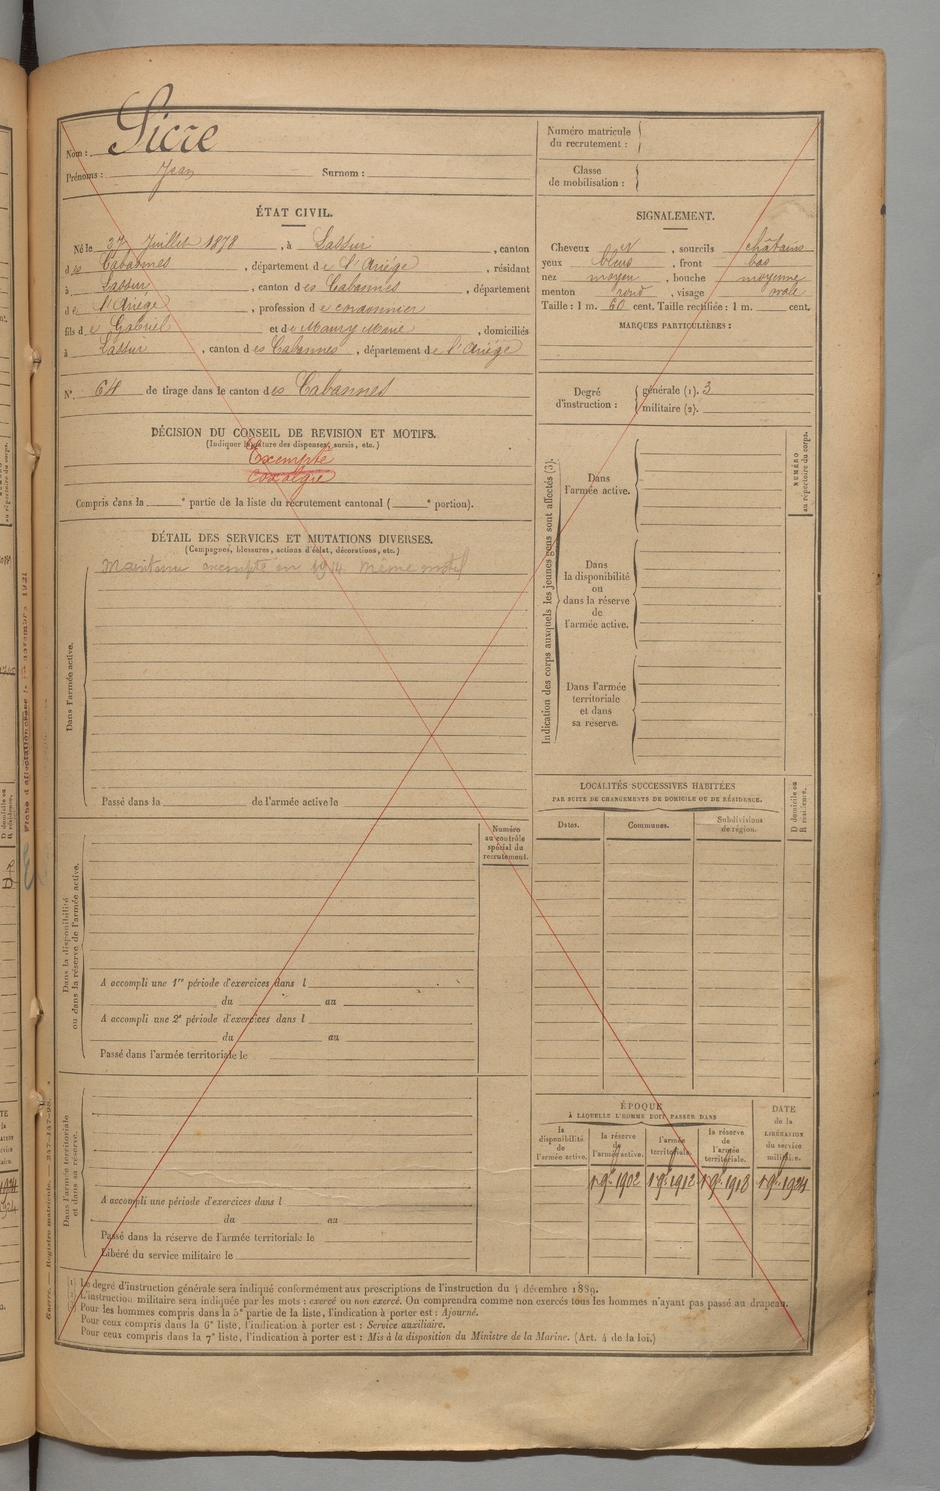 Nom : Sicre
Prénoms : Jean Surnom :
Numéro matricule
du recrutement :
Classe
de mobilisation :
ÉTAT CIVIL.
Né le 27 Juillet 1878, à Lassur, canton
des Cabannes, département de l'Ariège, résidant
à Lassur, canton des Cabannes, département
de l'Ariège, profession de cordonnier
fils de Gabriel et de Maury Marie, domiciliés
à Lassur, canton des Cabannes, département de l'Ariège
N° 64 de tirage dans le canton des Cabannes
SIGNALEMENT.
Cheveux, sourcils châtains
yeux bleus, front bas
nez moyen, bouche moyenne
menton rond, visage ovale
Taille : 1 m. 60 cent. Taille rectifiée : 1 m. cent.
MARQUES PARTICULIÈRES :
Degré
d'instruction :
générale (1). 3
militaire (2).
DÉCISION DU CONSEIL DE REVISION ET MOTIFS.
(Indiquer la nature des dispenses, sursis, etc.)
Exempté
coxalgie
Compris dans la e partie de la liste du recrutement cantonal ( e portion).
DÉTAIL DES SERVICES ET MUTATIONS DIVERSES.
(Campagnes, blessures, actions d'éclat, décorations, etc.)
Maintenu exempté en 1914 même motif
Dans l'armée active.
Passé dans la de l'armée active le
Indication des corps auxquels les jeunes gens sont affectés (3).
NUMÉRO
au répertoire du corps.
Dans
l'armée active.
Dans
la disponibilité
ou
dans la réserve
de
l'armée active.
Dans l'armée
territoriale
et dans
sa réserve.
Numéro
au contrôle
spécial du
recrutement.
Dans la disponibilité
ou dans la réserve de l'armée active.
A accompli une 1re période d'exercices dans l
du au
A accompli une 2e période d'exercices dans l
du au
Passé dans l'armée territoriale le
LOCALITÉS SUCCESSIVES HABITÉES
PAR SUITE DE CHANGEMENTS DE DOMICILE OU DE RÉSIDENCE.
D domicile ou
R résidence.
Dates.
Communes.
Subdivisions
de région.
Dans l'armée territoriale
et dans sa réserve.
A accompli une période d'exercices dans l
du au
Passé dans la réserve de l'armée territoriale le
Libéré du service militaire le
ÉPOQUE
À LAQUELLE L'HOMME DOIT PASSER DANS
la
disponibilité
de
l'armée active.
la réserve
de
l'armée active.
l'armée
territoriale.
la réserve
de
l'armée
territoriale.
DATE
de la
LIBÉRATION
du service
militaire.
1 9bre 1902
1 9bre 1912
1 9bre 1918
1 9bre 1924
(1) Le degré d'instruction générale sera indiqué conformément aux prescriptions de l'instruction du 4 décembre 1889.
(2) L'instruction militaire sera indiquée par les mots : exercé ou non exercé. On comprendra comme non exercés tous les hommes n'ayant pas passé au drapeau.
Pour les hommes compris dans la 5e partie de la liste, l'indication à porter est : Ajourné.
Pour ceux compris dans la 6e liste, l'indication à porter est : Service auxiliaire.
Pour ceux compris dans la 7e liste, l'indication à porter est : Mis à la disposition du Ministre de la Marine. (Art. 4 de la loi.)